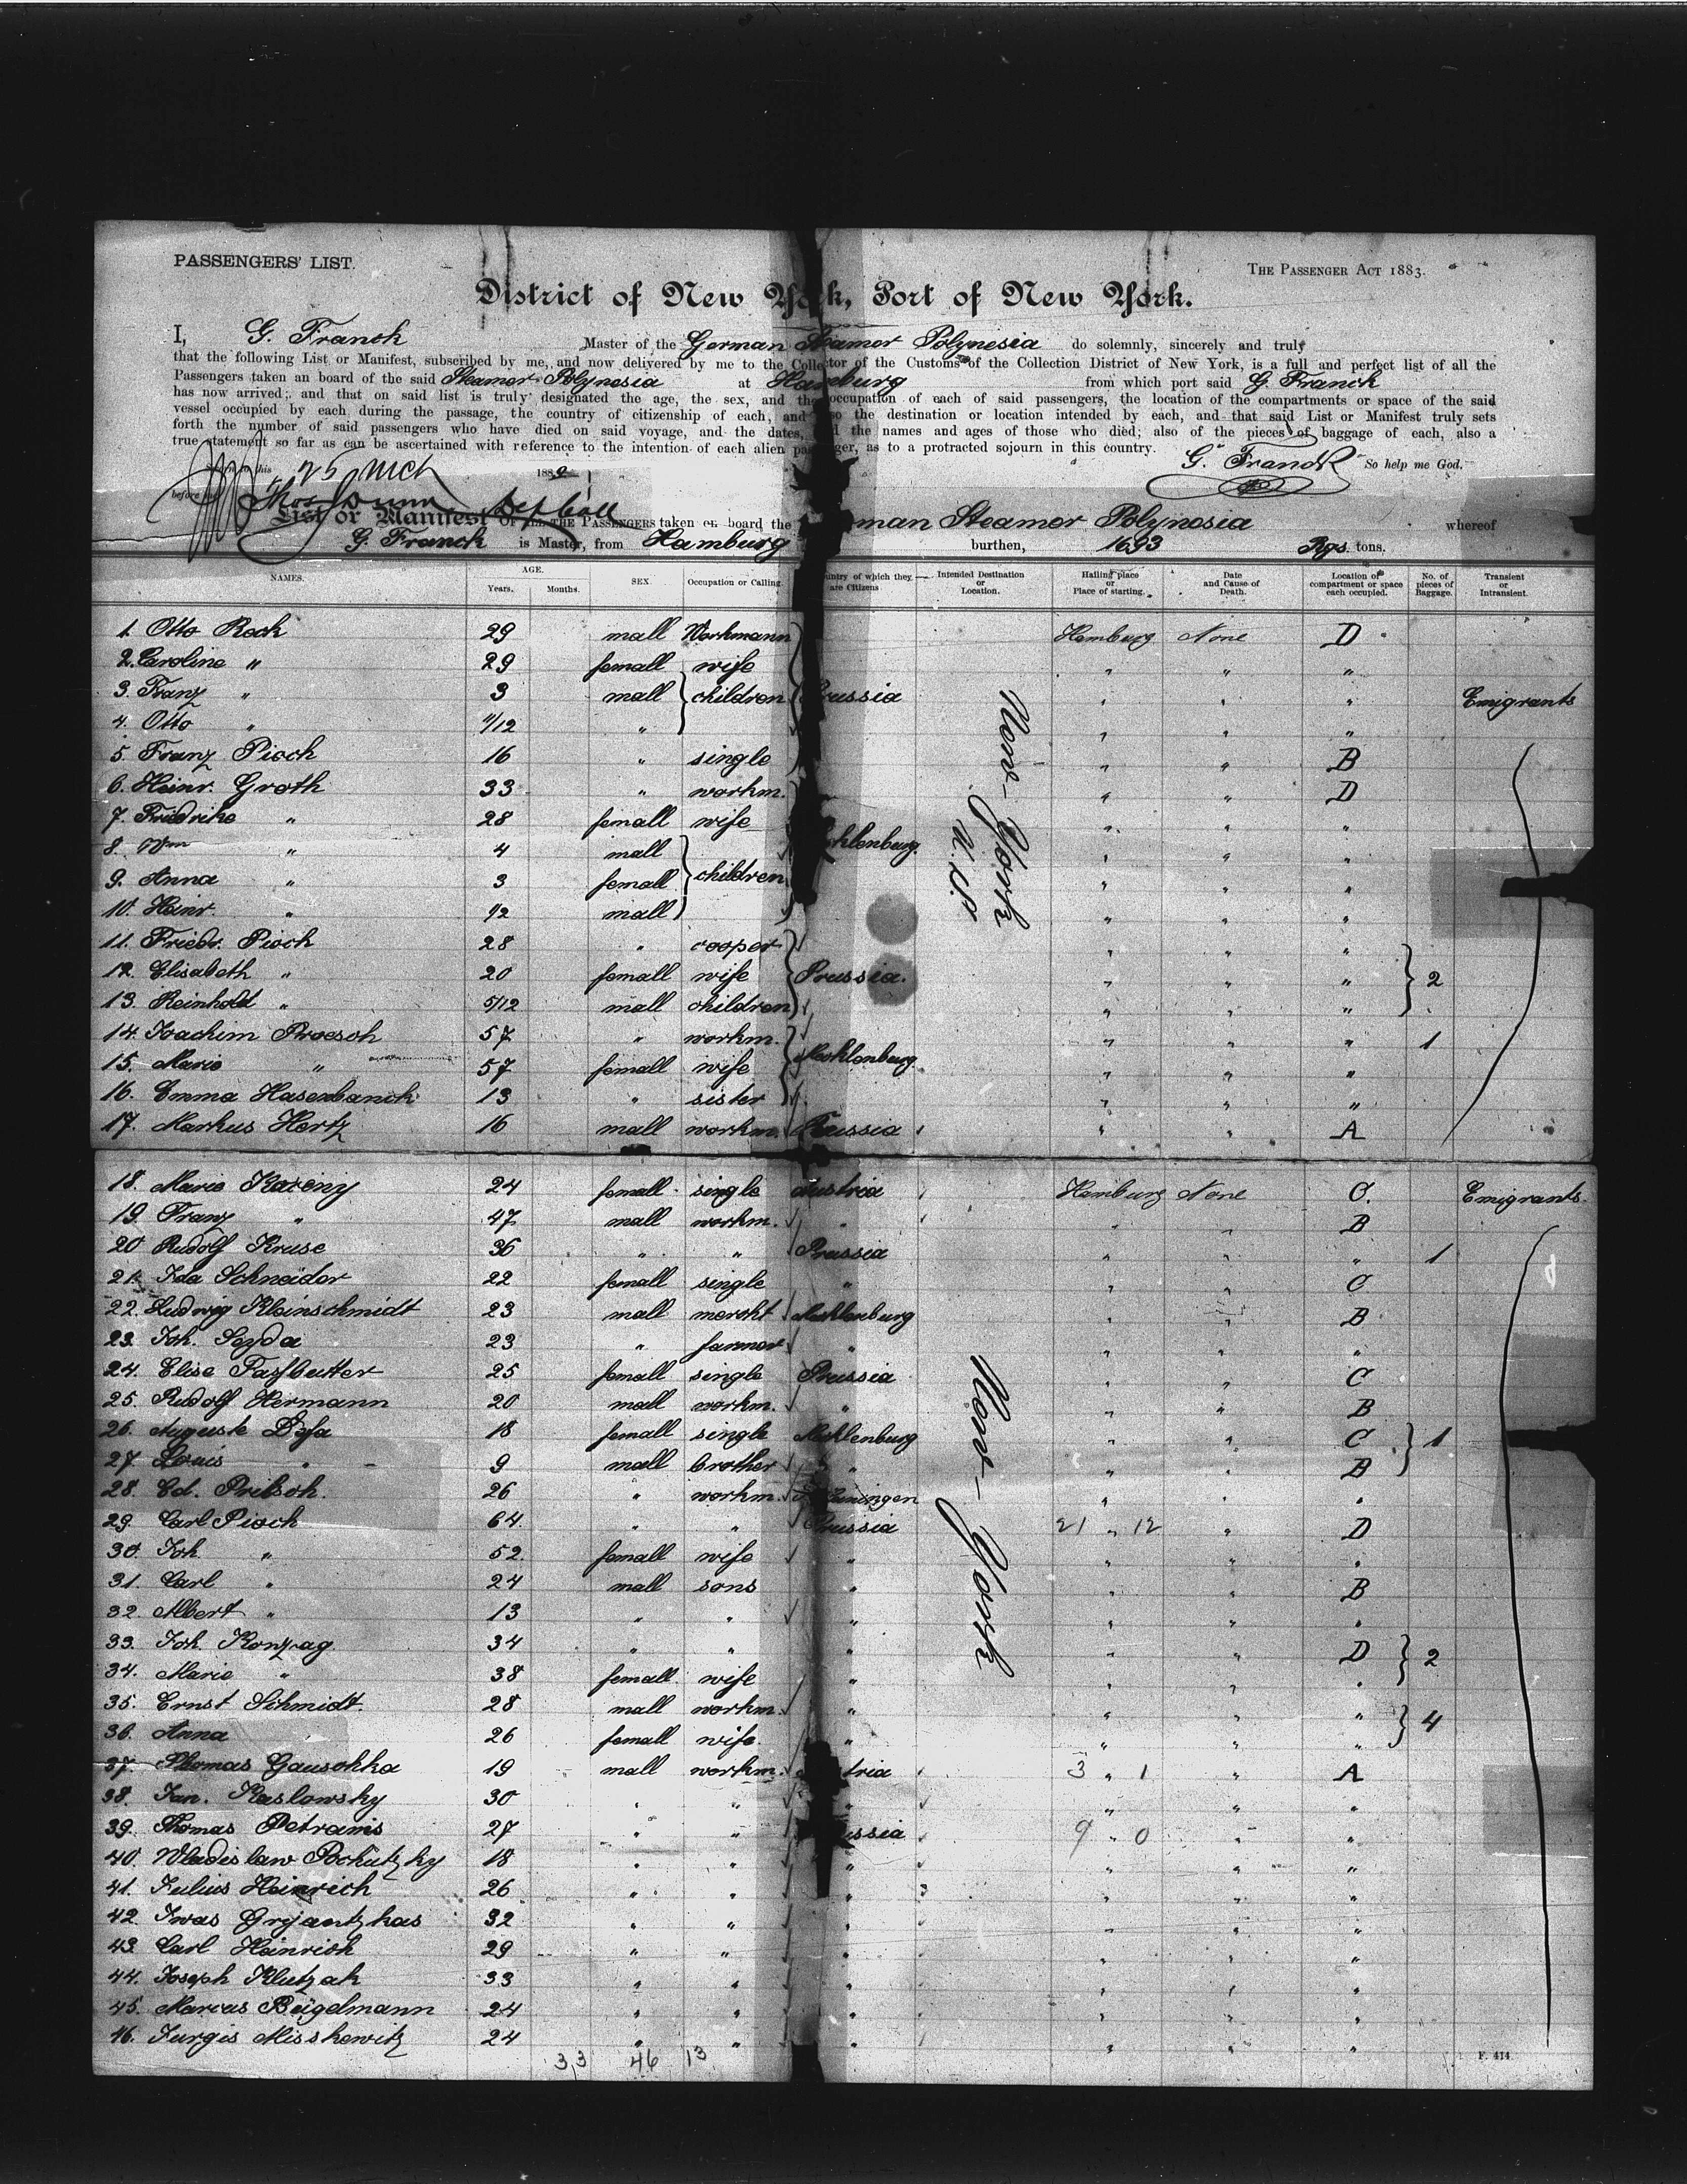 PASSENGERS' LIST.
THE PASSENGER ACT 1883.
District of New York, Port of New York.
I, G. Franck Master of the German Steamer Polynesia do solemnly, sincerely and truly
that the following List or Manifest, subscribed by me, and now delivered by me to the Collector of the Customs of the Collection District of New York, is a full and perfect list of all the
Passengers taken an board of the said Steamer Polynesia at Hamburg from which port said G. Franck
has now arrived; and that on said list is truly designated the age, the sex, and the occupation of each of said passengers, the location of the compartments or space of the said
vessel occupied by each during the passage, the country of citizenship of each, and also the destination or location intended by each, and that said List or Manifest truly sets
forth the number of said passengers who have died on said voyage, and the dates, and the names and ages of those who died; also of the pieces of baggage of each, also a
true statement so far as can be ascertained with reference to the intention of each alien passenger, as to a protracted sojourn in this country. G. Franck So help me God.
this 25 Mch 188
before me
List or Manifest OF ALL THE PASSENGERS taken on board the German Steamer Polynesia whereof
G. Franck is Master, from Hamburg burthen, 1693 Rgs. tons.
NAMES. AGE. Years. Months. SEX. Occupation or Calling. Country of which they are Citizens. Intended Destination or Location. Hailing place or Place of starting. Date and Cause of Death. Location of compartment or space each occupied. No. of pieces of Baggage. Transient or Intransient.
1. Otto Rock 29 mall Workmann Hamburg None D
2. Caroline " 29 femall wife " " "
3. Franz " 3 mall children Prussia " " " Emigrants
4. Otto " 11/12 " " " "
5. Franz Pioch 16 " single " " B
6. Heinr. Groth 33 " workm. " " D
7. Friedrike " 28 femall wife " " "
8. Wm " 4 mall Mecklenburg " " "
9. Anna " 3 femall children " " "
10. Heinr. " 1/2 mall " " "
New-York
U.S.
11. Friedr. Pioch 28 " cooper " " "
12. Elisabeth " 20 femall wife Prussia. " " " 2
13. Reinhold " 5/12 mall children " " "
14. Joachim Proesch 57 " workm. " " " 1
15. Marie " 57 femall wife Mecklenburg " " "
16. Emma Hasenbanck 13 " sister " " "
17. Markus Hertz 16 mall workm. Russia " " A
18. Marie Kareny 24 femall single Austria Hamburg None C. Emigrants
19. Franz " 47 mall workm. " " " B
20 Rudolf Kruse 36 " " Prussia " " " 1
21. Ida Schneider 22 femall single " " " C
22. Ludwig Kleinschmidt 23 mall mercht Mecklenburg " " B
23. Joh. Seyda 23 " farmer " " " "
24. Elise Fassbutter 25 femall single Prussia " " C
25. Rudolf Hermann 20 mall workm. " " " B
26. Auguste 18 femall single Mecklenburg " " C 1
27. Louis " 9 mall brother " " " B
28. Ed. Pritsch 26 " workm. Meiningen " " "
29. Carl Pioch 64. " " Prussia 21 " 12 " D
30. Joh. " 52. femall wife " " " "
31. Carl " 24 mall sons " " " B
32. Albert " 13 " " " " " "
New-York
33. Joh. Konzag 34 " " " " " D 2
34. Marie " 38 femall wife " " " "
35. Ernst Schmidt. 28 mall workm. " " " " 4
36. Anna 26 femall wife. " " " "
37. Thomas Gauschka 19 mall workm. Austria 3 " 1 " A
38. Jan. Kaslowsky 30 " " " " " "
39. Thomas Petramis 27 " " Russia 9 " 0 " "
40. Wladislaw Pochutzky 18 " " " " " "
41. Julius Heinrich 26 " " " " " "
42. Iwas Gryantzkas 32 " " " " " "
43. Carl Heinrich 29 " " " " " "
44. Joseph Klutzak 33 " " " " " "
45. Marcus Bügelmann 24 " " " " " "
46. Jurgis Misskewitz 24 " " " " " "
33 46 13
F. 414